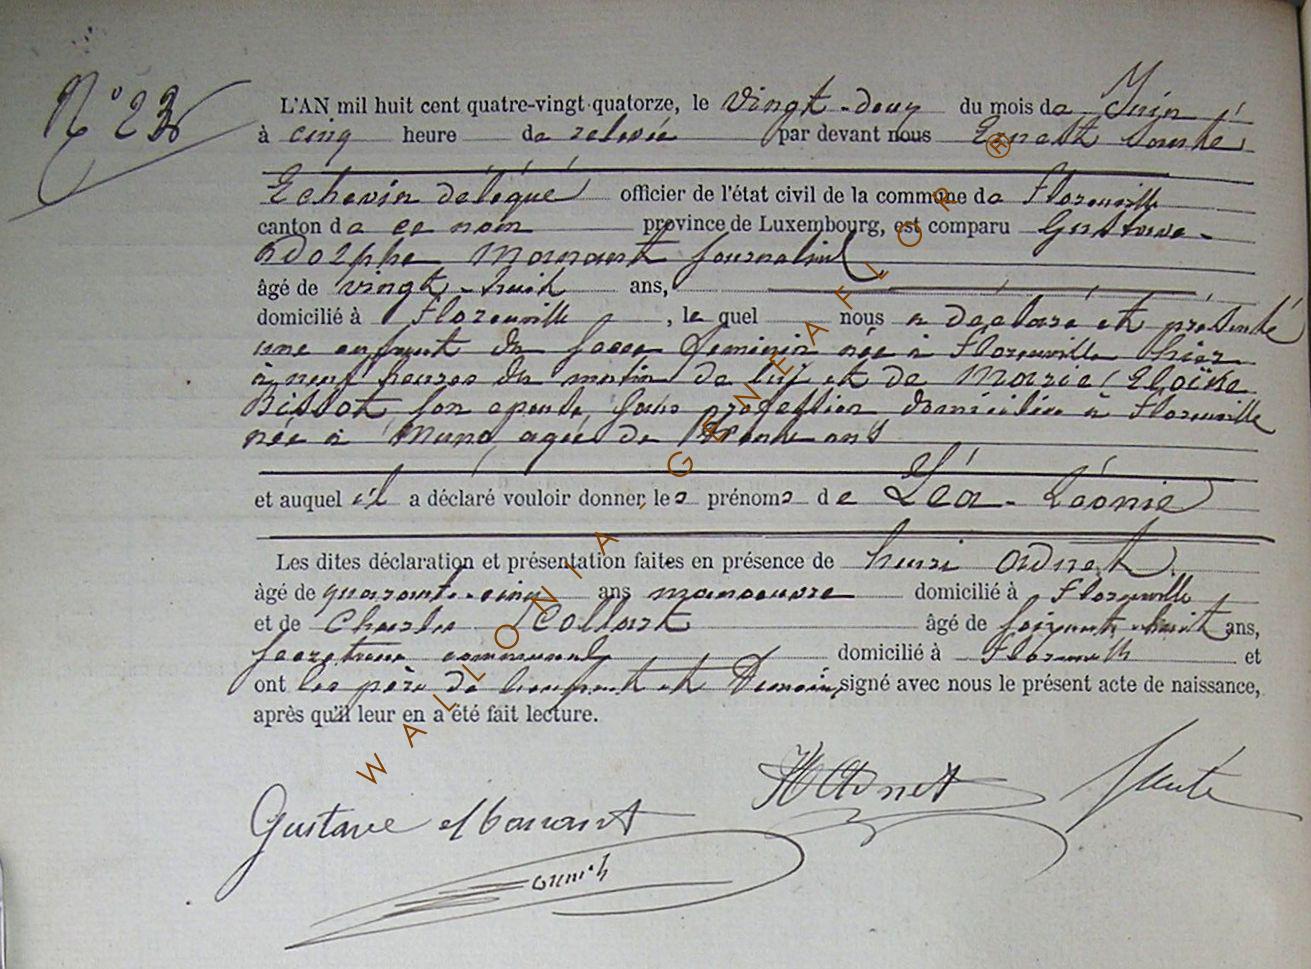 N° 23
L'AN mil huit cent quatre-vingt quatorze, le Vingt-deux du mois de Juin
à cinq heure de relevée par devant nous Ernest
Echevin délégué officier de l'état civil de la commune de Florenville
canton de ce nom province de Luxembourg, est comparu Gustave-
Adolphe Manant journalier
âgé de vingt-huit ans,
domicilié à Florenville, le quel nous a déclaré et présenté
une enfant du sexe féminin née à Florenville hier
à neuf heures du matin de lui et de Marie Eloïse
Bissot son epouse, sans profession domiciliée à Florenville
née à Muno, agée de trente ans
et auquel il a déclaré vouloir donner les prénoms de Léa-Léonie
Les dites déclaration et présentation faites en présence de henri Ordnet
âgé de quarante-cinq ans manoeuvre domicilié à Florenville
et de Charles Collart âgé de soixante-huit ans,
secrétaire communal domicilié à Florenville et
ont les père de l'enfant et témoins signé avec nous le présent acte de naissance,
après qu'il leur en a été fait lecture.
Gustave Manant
WALLONIA, GENEAFLOR ®